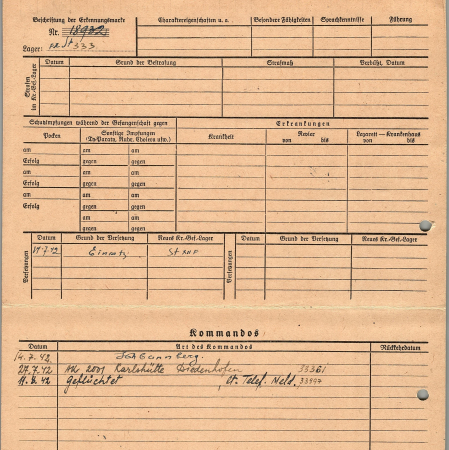 Beschriftung der Erkennungsmarke
Nr. 18932
Lager: St 333
Charaktereigenschaften u. a.
Besondere Fähigkeiten
Sprachkenntnisse
Führung
Strafen im Kr.-Gef.-Lager
Datum
Grund der Bestrafung
Strafmaß
Verbüßt, Datum
Schutzimpfungen während der Gefangenschaft gegen
Erkrankungen
Pocken
Sonstige Impfungen
(Ty-Paraty, Ruhr, Cholera usw.)
Krankheit
Revier
von bis
Lazarett — Krankenhaus
von bis
am am am
Erfolg gegen gegen
am am am
Erfolg gegen gegen
am am am
Erfolg gegen gegen
am am
gegen gegen
Versetzungen
Datum
Grund der Versetzung
Neues Kr.-Gef.-Lager
Versetzungen
Datum
Grund der Versetzung
Neues Kr.-Gef.-Lager
14.7.42 Einsatz St XII F
Kommandos
Datum
Art des Kommandos
Rückkehrdatum
14.7.42. Johannsberg.
27.7.42 2001 Karlshütte Diedenhofen 33361
11.8.42 geflüchtet lt. Telef. Meld. 33997